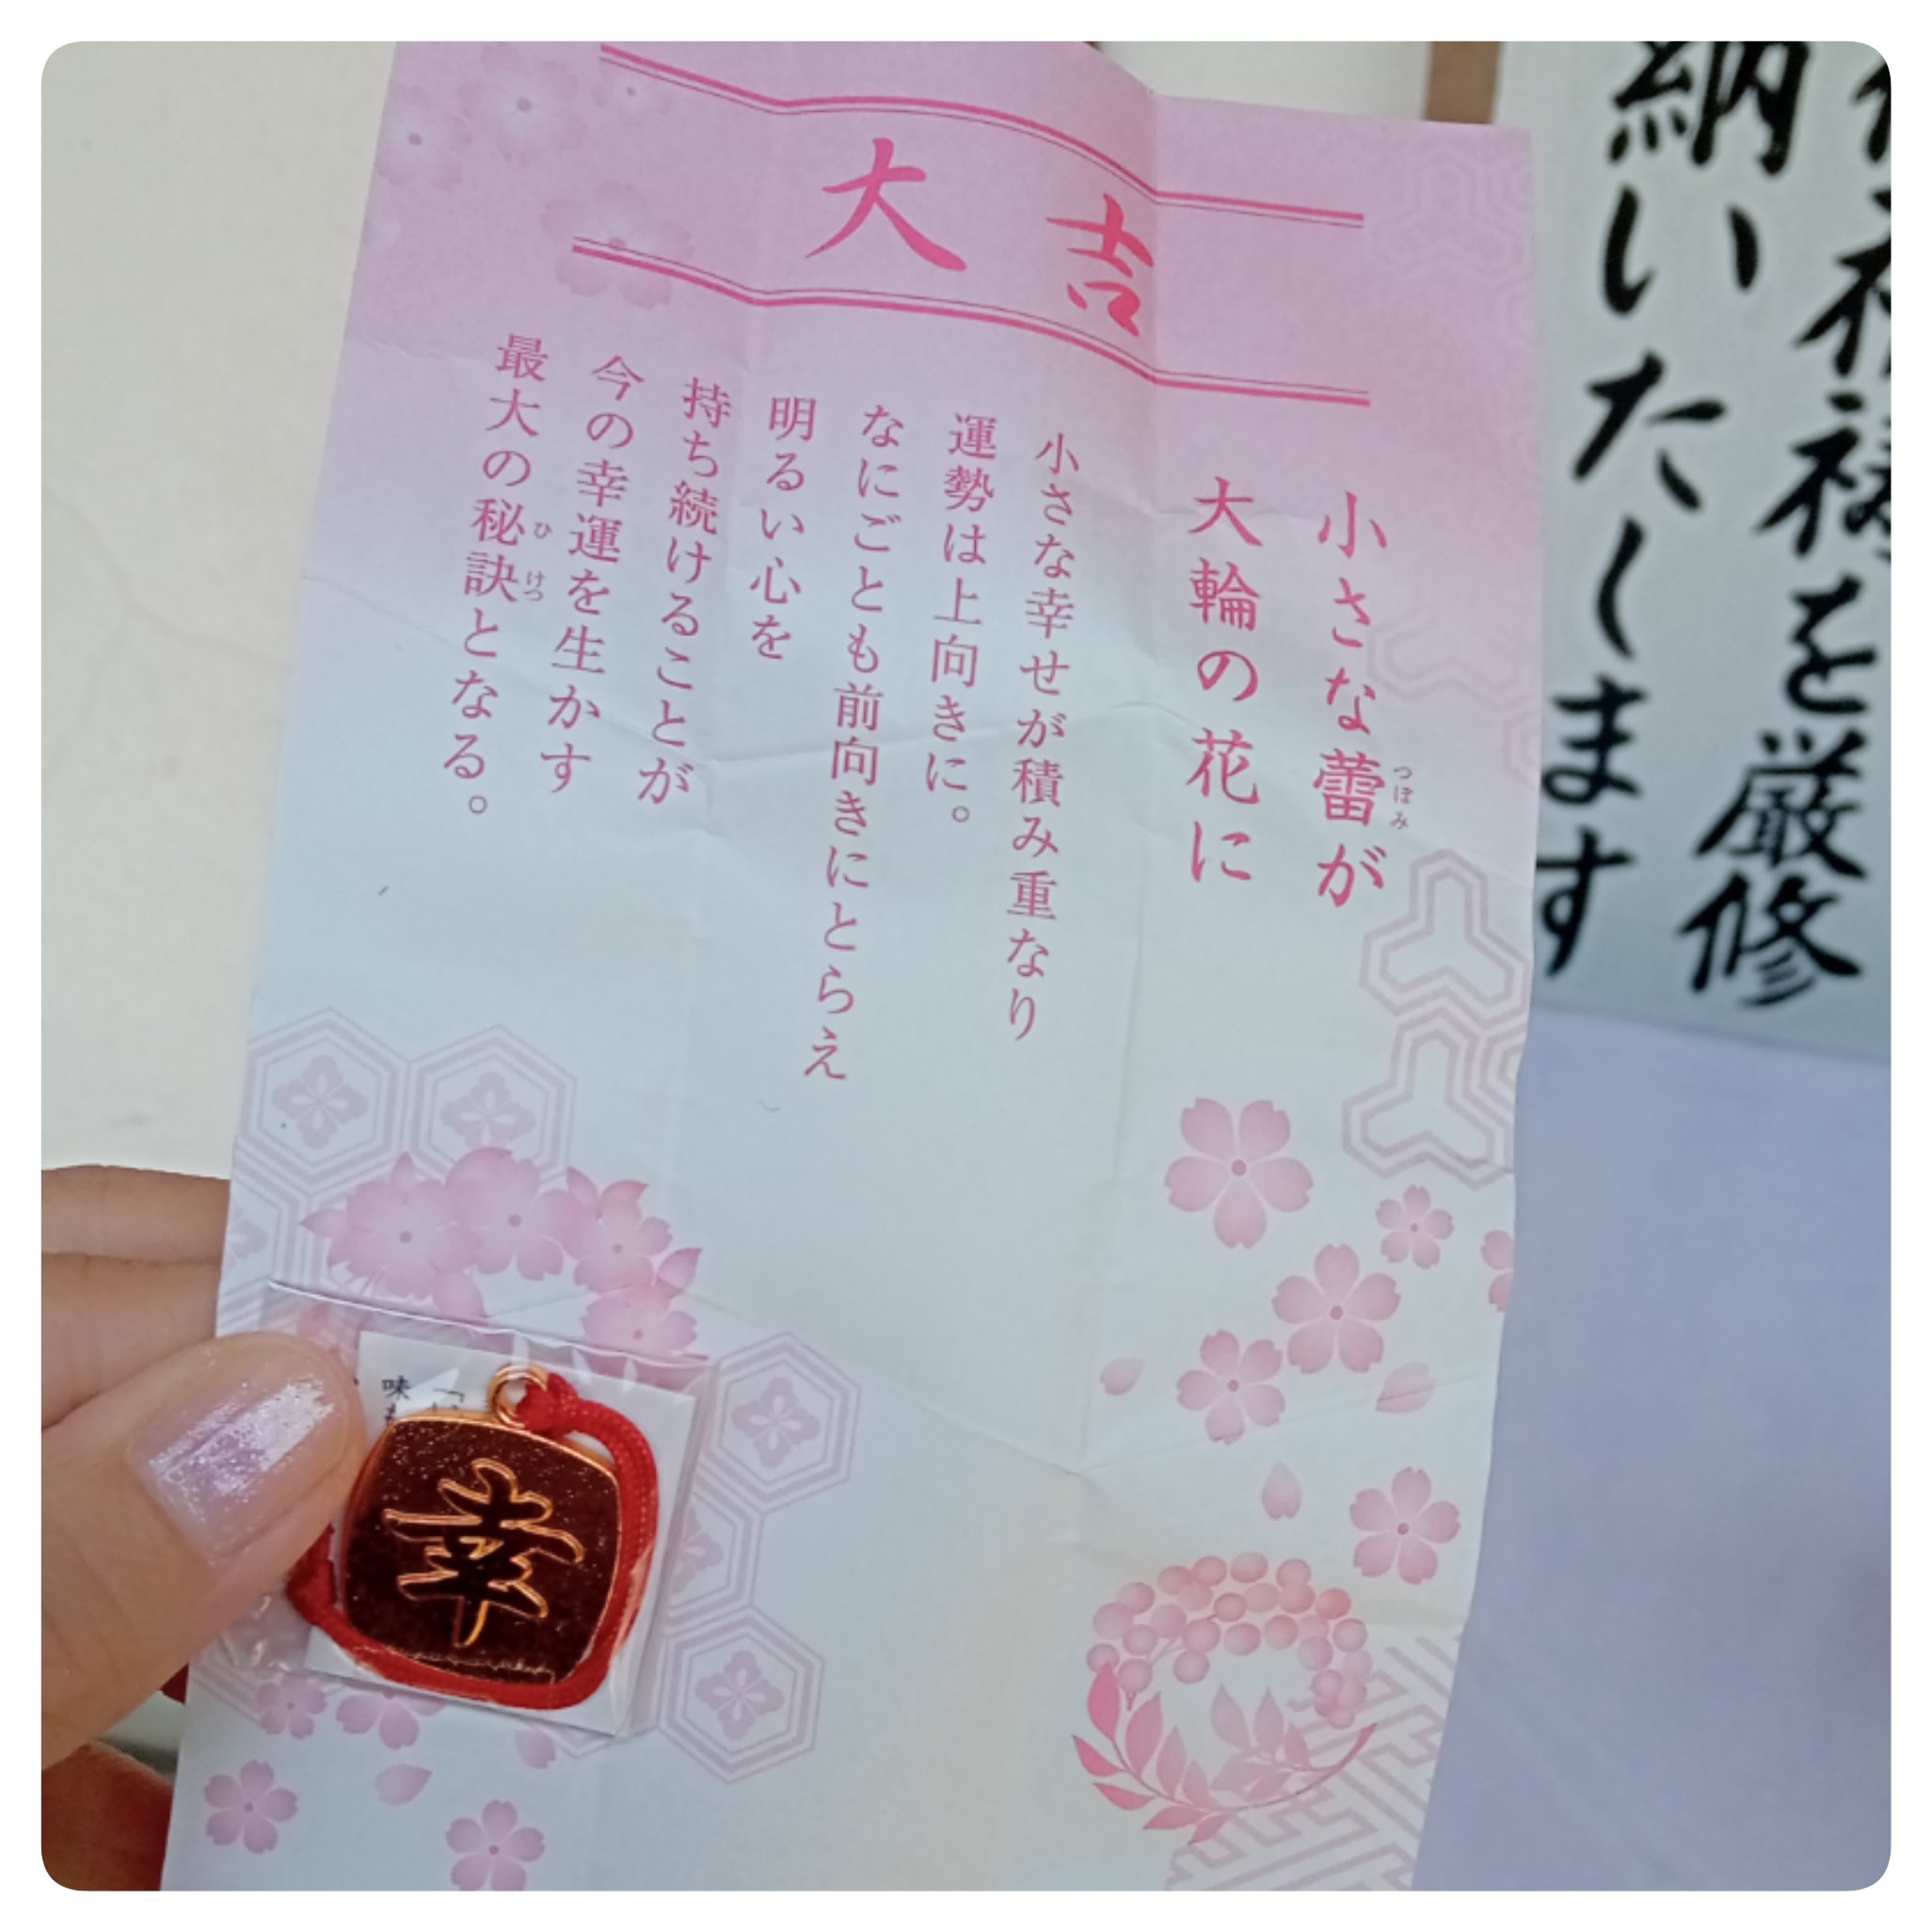 大吉
小さな蕾が
つぼみ
大輪の花に
小さな幸せが積み重なり
運勢は上向きに。
なにごとも前向きにとらえ
明るい心を
持ち続けることが
今の幸運を生かす
最大の秘訣となる。
ひけつ
幸
味
を厳修
納いたします